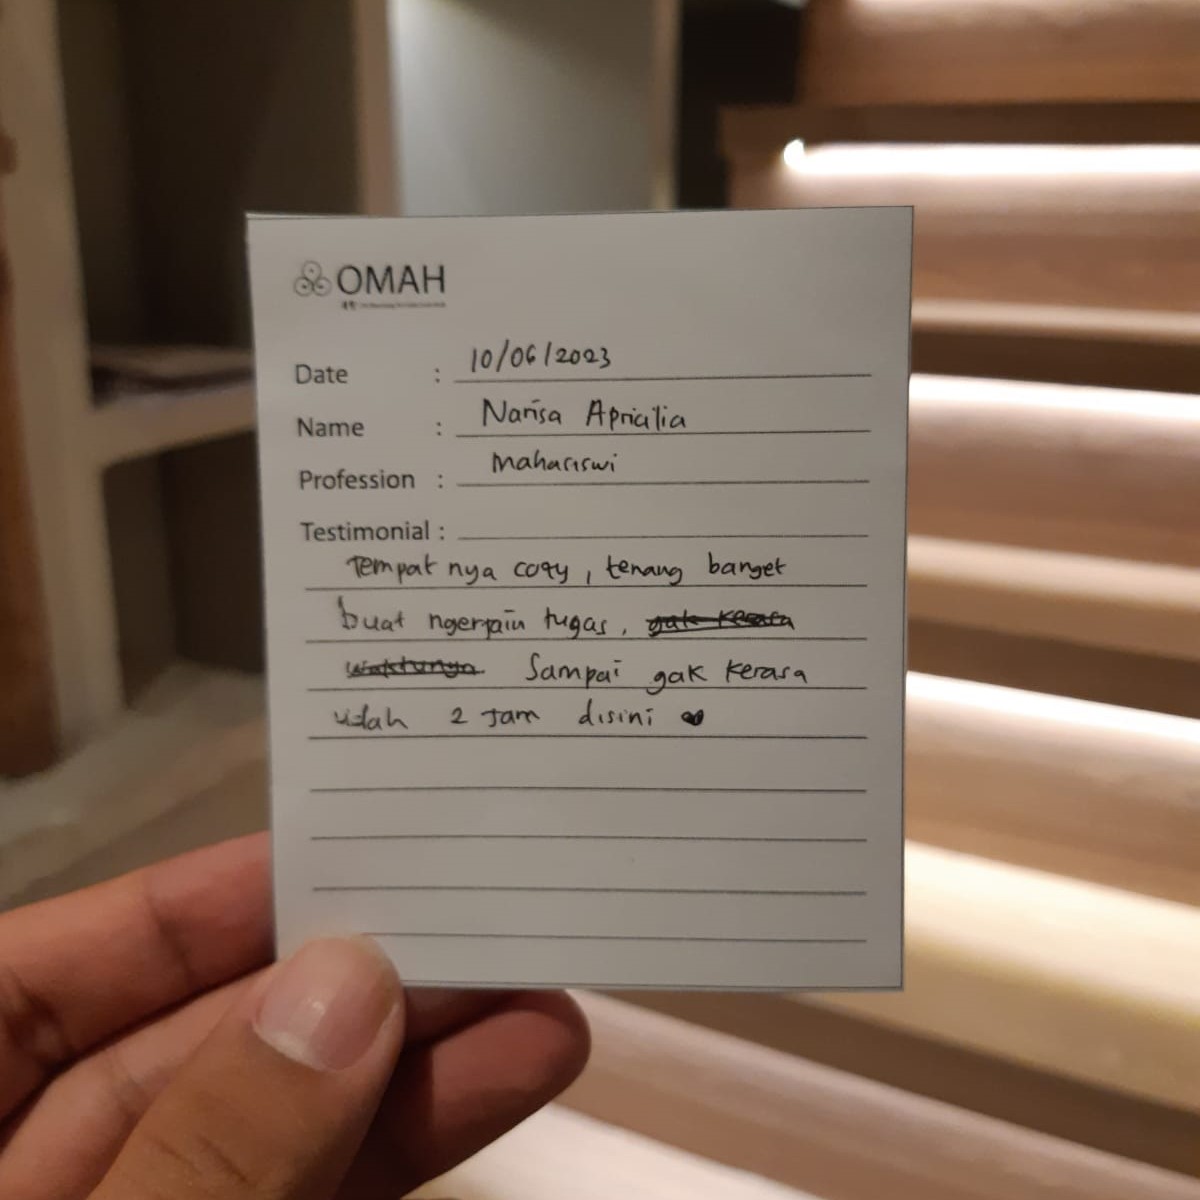 OMAH
Date : 10/06/2023
Name : Narisa Aprialia
Profession : Mahasiswi
Testimonial :
Tempat nya cozy, tenang banget
buat ngerjain tugas, gak kerasa
waktunya. Sampai gak kerasa
udah 2 Jam disini ♥